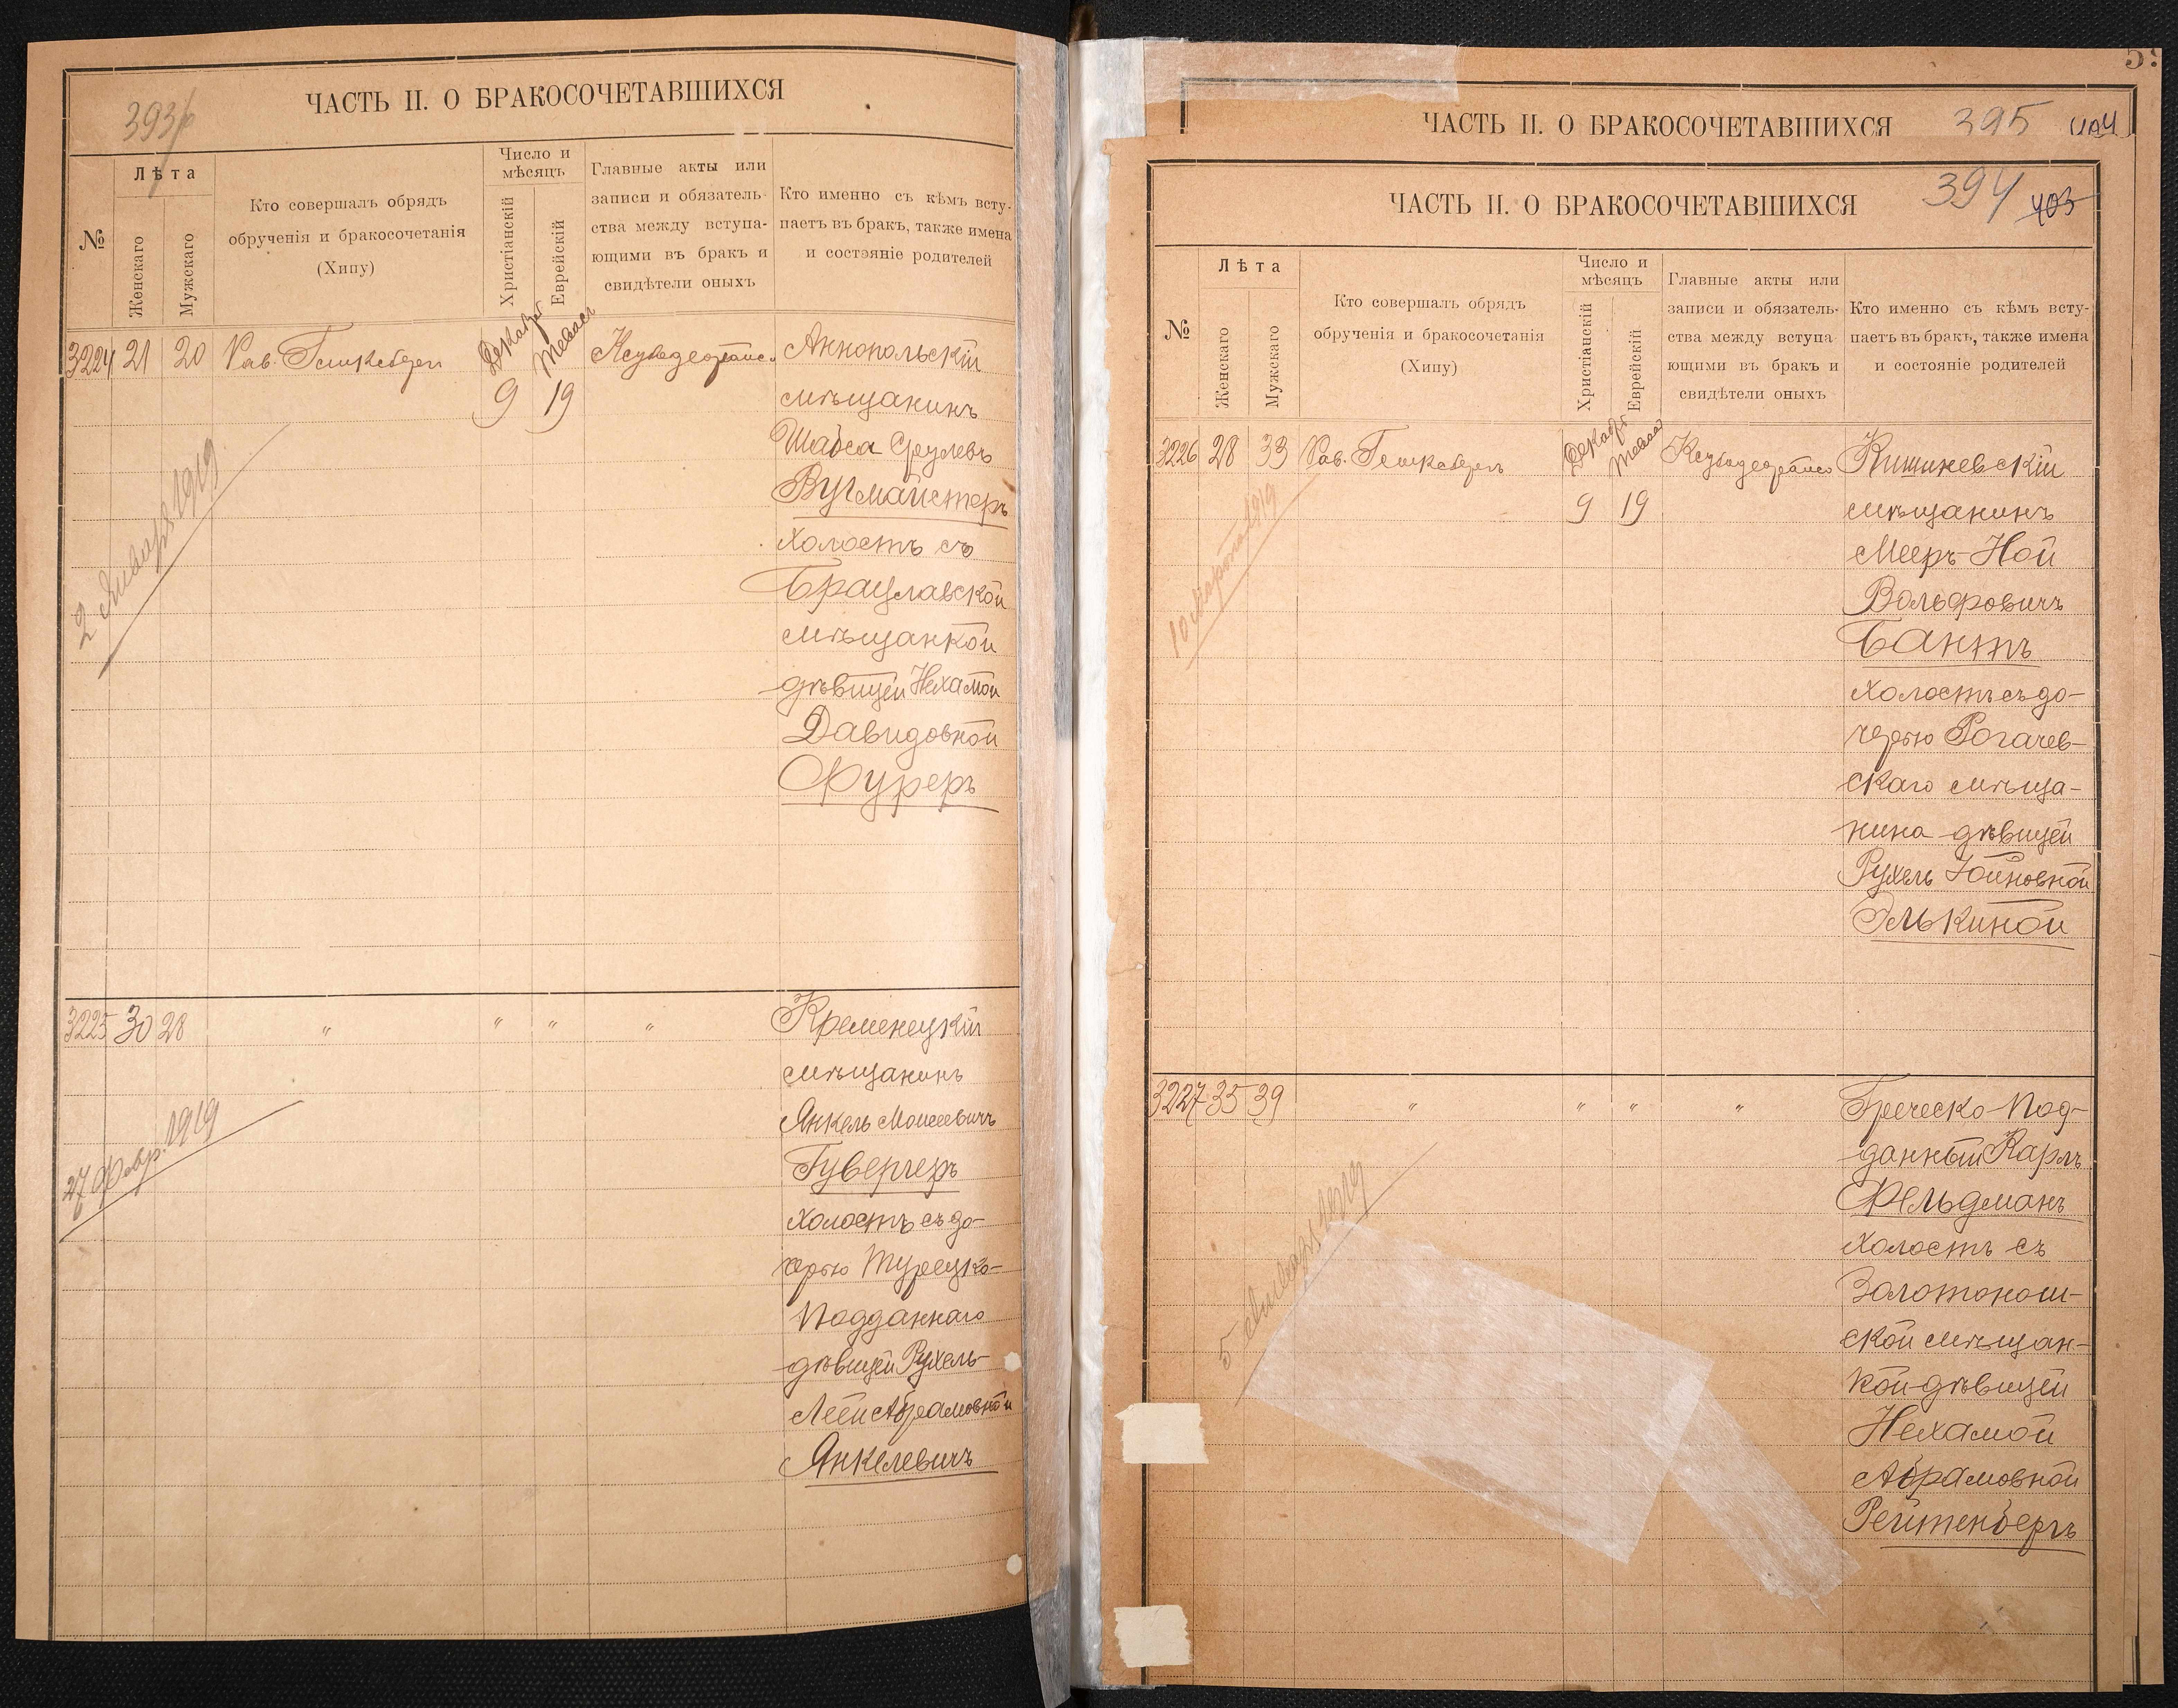 393
ЧАСТЬ II. О БРАКОСОЧЕТАВШИХСЯ
№
Лѣта
Женскаго
Мужскаго
Кто совершалъ обрядъ
обрученія и бракосочетанія
(Хипу)
Число и
мѣсяцъ
Христіанскій
Еврейскій
Главные акты или
записи и обязатель-
ства между вступа-
ющими въ бракъ и
свидѣтели оныхъ
Кто именно съ кѣмъ всту-
паетъ въ бракъ, также имена
и состояніе родителей
3224 21 20 Рав. Декабря 9 19 Аннопольскій
мѣщанинъ
Шабса Сруlевъ
Вугмайстеръ
холостъ съ
Брацлавской
мѣщанкой
дѣвицей Нехамой
Давидовной
Фуреръ
2 Января 1919
3225 30 28 " " " " Кременецкій
мѣщанинъ
Янкель Моисеевичъ
Гувергеръ
холостъ съ до-
черью Турецко-
Подданнаго
дѣвицей Рухель-
Леей Абрамовной
Янкелевичъ
27 Февр. 1919
ЧАСТЬ II. О БРАКОСОЧЕТАВШИХСЯ 395
ЧАСТЬ II. О БРАКОСОЧЕТАВШИХСЯ
394 403
№
Лѣта
Женскаго
Мужскаго
Кто совершалъ обрядъ
обрученія и бракосочетанія
(Хипу)
Число и
мѣсяцъ
Христіанскій
Еврейскій
Главные акты или
записи и обязатель-
ства между вступа-
ющими въ бракъ и
свидѣтели оныхъ
Кто именно съ кѣмъ всту-
паетъ въ бракъ, также имена
и состояніе родителей
3226 28 33 Рав. Декабря 9 19 Кишиневскій
мѣщанинъ
Мееръ-Ной
Вольфовичъ
Бантъ
холостъ съ до-
черью Рогачев-
скаго мѣща-
нина дѣвицей
Рухель Іойновной
Элькиной
10 Марта 1919
3227 35 39 " " " " Греческо-Под-
данный Карлъ
Фельдманъ
холостъ съ
Золотонош-
ской мѣщан-
кой дѣвицей
Нехамой
Абрамовной
Рейтенбергъ
5 Января 1919